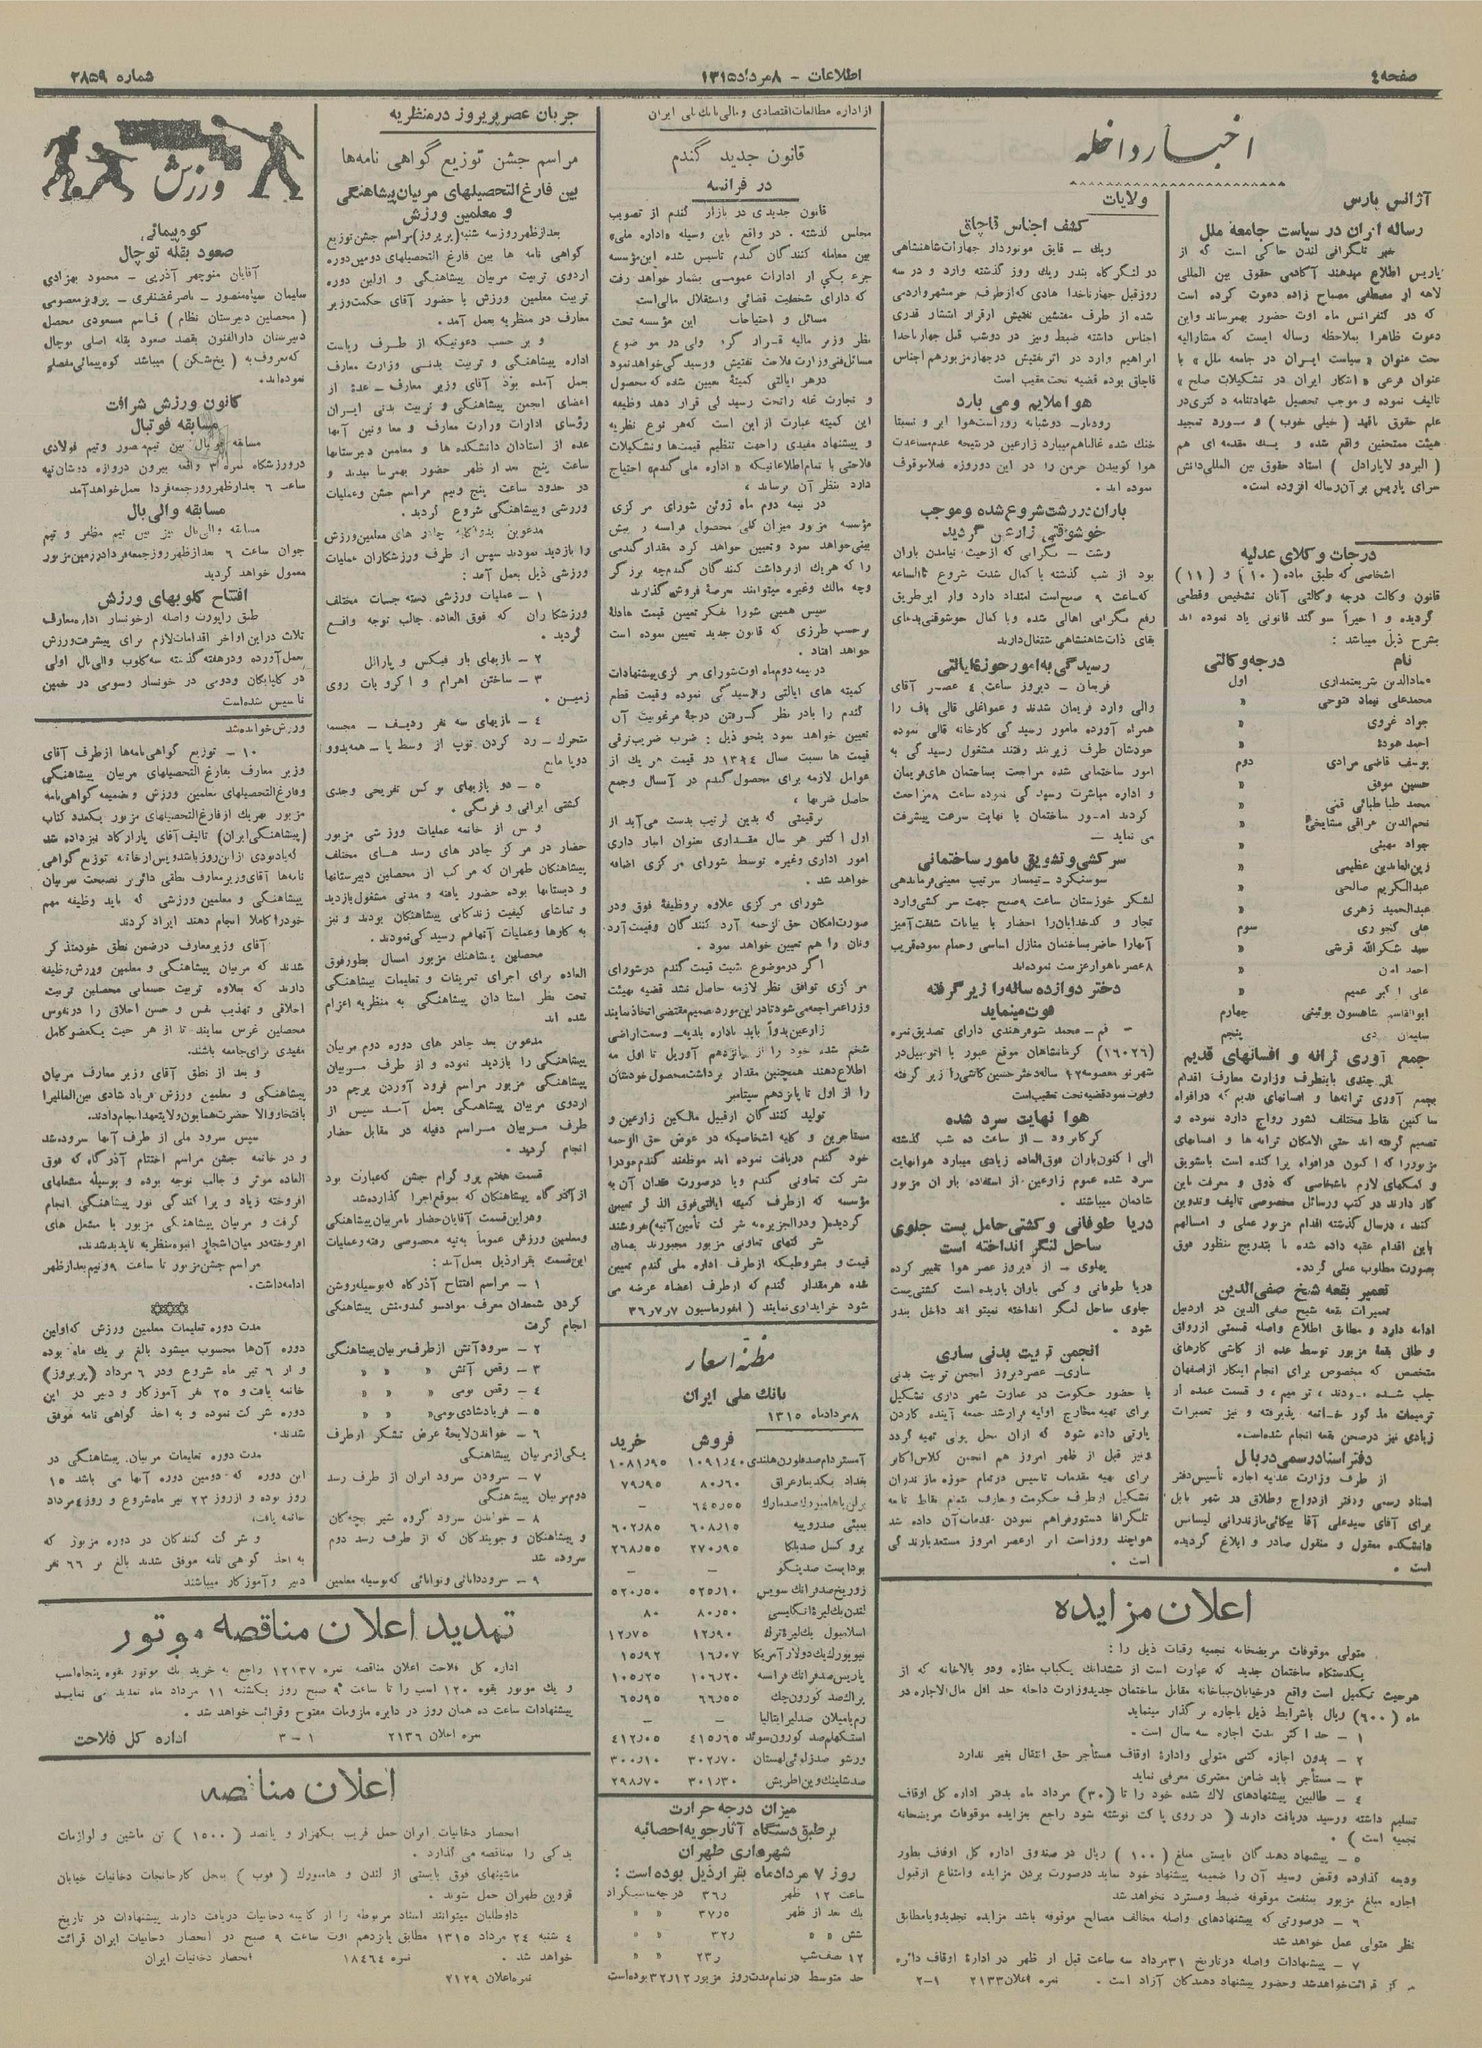 صفحه ٤
اطلاعات - ٨ مرداد ١٣١٥
شماره ٢٨٥٩
اخبار داخله
آژانس پارس
رساله ایران در سیاست جامعه ملل
خبر تلگرافی لندن حاکی است که از
پاریس اطلاع میدهند آکادمی حقوق بین المللی
لاهه از مصطفی مصباح زاده دعوت کرده است
که در کنفرانس ماه اوت حضور بهمرساند واین
دعوت ظاهرا بملاحظه رساله ایست که مشارالیه
تحت عنوان « سیاست ایران در جامعه ملل » با
عنوان فرعی « ابتکار ایران در تشکیلات صلح »
تالیف نموده و موجب تحصیل شهادتنامه دکتری در
هیئت ممتحنین واقع شده و یک مقدمه ای هم
( البردو لاپارادل ) استاد حقوق بین المللی دانش
سرای پاریس بر آن رساله افزوده است.
درجات وکلای عدلیه
اشخاصی که طبق ماده (١٠) و (١١)
قانون وکالت درجه وکالتی آنان تشخیص وقطعی
گردیده و اخیراً سوگند قانونی یاد نموده اند
بشرح ذیل میباشد :
نام درجه وکالتی
عمادالدین شریعتمداری اول
جواد غروی »
یوسف قاضی مرادی دوم
حسین موفق »
محمد طباطبائی قمی »
زین العابدین عظیمی »
عبدالکریم صالحی »
عبدالحمید زهری »
سید شکرالله قرشی »
علی اکبر عمیم »
جمع آوری ترانه و افسانهای قدیم
بجمع آوری ترانه ها و افسانهای قدیم که درافواه
ساکنین نقاط مختلف کشور رواج دارد نموده و
تصمیم گرفته اند حتی الامکان ترانه ها و افسانهای
مزبور را که اکنون درافواه پراکنده است باتشویق
و کمکهای لازم باشخاصی که ذوق و معرفت باین
کار دارند در کتب ورسائل مخصوصی تالیف وتدوین
کنند ، درسال گذشته اقدام مزبور عملی و امسالهم
باین اقدام عقبه داده شده تا بتدریج منظور فوق
بصورت مطلوب عملی گردد.
تعمیر بقعه شیخ صفی الدین
تعمیرات بقعه شیخ صفی الدین در اردبیل
ادامه دارد و مطابق اطلاع واصله قسمتی ازرواق
و طاق بقعه مزبور توسط عده از کاشی کارهای
متخصص که مخصوص برای انجام اینکار ازاصفهان
زیادی نیز درصحن بقعه انجام شده است.
دفتر اسناد رسمی در بابل
از طرف وزارت عدلیه اجازه تأسیس دفتر
اسناد رسمی ودفتر ازدواج وطلاق در شهر بابل
دانشکده معقول و منقول صادر و ابلاغ گردیده
است .
ولایات
کشف اجناس قاچاق
شده از طرف مفتشین تفتیش ازقرار انتشار قدری
اجناس داشته ضبط ونیز در دوشب قبل جهاز ناخدا
ابراهیم وارد در اثر تفتیش در جهاز مزبور هم اجناس
قاچاق بوده قضیه تحت تعقیب است
هوا ملایم و می بارد
رودبار- دوشبانه روز است هوا ابر و نسبتا
خنک شده غالباً هم میبارد زارعین در نتیجه عدم مساعدت
هوا کوبیدن خرمن را در این دو روزه فعلا موقوف
نموده اند .
باران در رشت شروع شده و موجب
خوشوقتی زارعین گردید
رشت - نگرانی که از حیث نیامدن باران
بود از شب گذشته با کمال شدت شروع تا الساعه
که ساعت ٩ صبح است امتداد دارد و از این طریق
رفع نگرانی اهالی شده و با کمال خوشوقتی بدعای
بقای ذات شاهنشاهی اشتغال دارند
رسیدگی به امور حوزه ایالتی
فریمان - دیروز ساعت ٤ عصر آقای
والی وارد فریمان شدند و عمواغلی قالی باف را
همراه آورده مامور رسیدگی کارخانه قالی نموده
امور ساختمانی شده مراجعت بساختمان های فریمان
گردند امور ساختمان با نهایت سرعت پیشرفت
می نماید -
سرکشی و تشویق بامور ساختمانی
سوسنگرد - تیمسار سرتیپ معینی فرماندهی
لشگر خوزستان ساعت ٩ صبح جهت سرکشی وارد
تجار و کدخدایان را احضار با بیانات شفقت آمیز
٨ عصر باهواز عزیمت نموده اند
دختر دوازده ساله را زیر گرفته
فوت مینماید
قم - محمد شوفر هندی دارای تصدیق نمره
(١٦٠٢٦) کرمانشاهان موقع عبور با اتومبیل در
هوا نهایت سرد شده
الی اکنون باران فوق العاده زیادی میبارد هوا نهایت
سرد شده عموم زارعین از استفاده باران مزبور
شادمان میباشند .
دریا طوفانی و کشتی حامل پست جلوی
ساحل لنگر انداخته است
پهلوی - از دیروز عصر هوا تغییر کرده
دریا طوفانی و کمی باران باریده است کشتی پست
جلوی ساحل لنگر انداخته نمیتواند داخل بندر
شود .
انجمن تربیت بدنی ساری
ساری- عصر دیروز انجمن تربیت بدنی
با حضور حکومت در عمارت شهرداری تشکیل
برای تهیه مخارج اولیه قرار شد جمعه آینده گاردن
پارتی داده شود که از آن محل پولی تهیه گردد
ونیز قبل از ظهر امروز هم انجمن کلاس اکابر
برای تهیه مقدمات تاسیس در تمام حوزه مازندران
تشکیل از طرف حکومت و معارف بتمام نقاط نامه
تلگرافا دستور فراهم نمودن مقدمات آن داده شد
هوا چند روز است ابر از عصر امروز مستعد بارندگی
است .
از اداره مطالعات اقتصادی و مالی بانک ملی ایران
قانون جدید گندم
در فرانسه
قانون جدیدی در بازار گندم از تصویب
مجلس گذشته . در واقع باین وسیله «اداره ملی»
بین معامله کنندگان گندم تاسیس شده این مؤسسه
جزء یکی از ادارات عمومی بشمار خواهد رفت
که دارای شخصیت قضائی و استقلال مالی است
مسائل و احتیاجات این مؤسسه تحت
نظر وزیر مالیه قرار گرفته ولی در موضوع
مسائل فنی وزارت فلاحت تفتیش ورسیدگی خواهد نمود
درهر ایالتی کمیته معین شده که محصول
و تجارت غله را تحت رسیدگی قرار دهد وظیفه
این کمیته عبارت از این است که هر نوع نظریه
و پیشنهاد مفیدی راجعت تنظیم قیمت ها و تشکیلات
فلاحتی با تمام اطلاعاتیکه « اداره ملی گندم » احتیاج
دارد بنظر آن برساند ،
در نیمه دوم ماه ژوئن شورای مرکزی
مؤسسه مزبور میزان کلی محصول فرانسه را پیش
بینی خواهد نمود وتعیین خواهد کرد مقدار گندمی
را که هر یک از برداشت کنندگان گندم چه برزگر
وچه مالک وغیره میتوانند عرضه فروش گذارند
سپس همین شورا بفکر تعیین قیمت عادلهٔ
برحسب طرزی که قانون جدید تعیین نموده است
خواهد افتاد .
در نیمه دوم ماه اوت شورای مرکزی پیشنهادات
کمیته های ایالتی را رسیدگی نموده وقیمت قطعی
گندم را با در نظر گرفتن درجهٔ مرغوبیت آن
تعیین خواهد نمود بنحو ذیل : ضرب ضریب ترقی
عوامل لازمه برای محصول گندم در آنسال وجمع
حاصل ضربها ،
برقیمتی که بدین ترتیب بدست می آید از
اول اکتبر هر سال مقداری بعنوان انبار داری
امور اداری وغیره توسط شورای مرکزی اضافه
خواهد شد .
شورای مرکزی علاوه بر وظیفهٔ فوق و در
صورت امکان حق الزحمه آرد کنندگان وقیمت آرد
ونان را هم تعیین خواهد نمود .
اگر در موضوع تثبیت قیمت گندم در شورای
مرکزی توافق نظر لازمه حاصل نشد قضیه بهیئت
وزرا مراجعه می شود تا در این مورد تصمیم مقتضی اتخاذ نمایند
زارعین بدواً باید باداره بلدیه- وسعت اراضی
شخم شده خود را از پانزدهم آوریل تا اول مه
اطلاع دهند همچنین مقدار برداشت محصول خودشان
را از اول تا پانزدهم سپتامبر
تولید کنندگان ازقبیل مالکین زارعین و
مستاجرین و کلیه اشخاصیکه در عوض حق الزحمه
مؤسسه که از طرف کمیته ایالتی فوق الذکر تعیین
شرکتهای تعاونی مزبور مجبورند بهمان
قیمت و بشروطیکه از طرف اداره ملی گندم تعیین
شده هر مقدار گندم که از طرف اعضاء عرضه می
شود خریداری نمایند ( انفورماسیون ٧ر٧ر٣٦
مظنه اسعار
بانک ملی ایران
٨ مرداد ماه ١٣١٥
فروش خرید
آمستردام صد فلورن هلندی ١٠٩١٫٤٠ ١٠٨١٫٩٥
بغداد یکدینار عراق ٨٠٫٦٠ ٧٩٫٩٥
برلن یا هامبورک صد مارک ٦٤٥٫٥٥ -
بمبئی صد روپیه ٦٠٨٫١٥ ٦٠٢٫٨٥
بروکسل صد بلکا ٢٧٠٫٩٥ ٢٦٨٫٥٥
بوداپست صد پنگو - -
زوریخ صد فرانک سویس ٥٢٥٫١٠ ٥٢٠٫٥٠
لندن یک لیرهٔ انگلیسی ٨٠٫٥٠ ٨٠
اسلامبول یک لیرهٔ ترک ١٢٫٩٠ ١٢٫٧٥
نیویورک یک دولار آمریکا ١٦٫٠٧ ١٥٫٩٢
پاریس صد فرانک فرانسه ١٠٦٫٢٠ ١٠٥٫٢٥
پراک صد کورون چک ٦٦٫٥٥ ٦٥٫٩٥
رم یا میلان صد لیر ایتالیا - -
استکهلم صد کورون سوئد ٤١٥٫٦٥ ٤١٢٫٠٥
ورشو صد زلوتی لهستان ٣٠٢٫٧٠ ٣٠٠٫١٠
صد شلینک وین اطریش ٣٠١٫٣٠ ٢٩٨٫٧٠
میزان درجه حرارت
بر طبق دستگاه آثار جویه احصائیه
شهرداری طهران
روز ٧ مرداد ماه بقرار ذیل بوده است :
ساعت ١٢ ظهر ٣٦ر درجه سانتیگراد
یک بعد از ظهر ٣٧ر٥ » »
شش » » ٣٢ر » »
١٢ نصف شب ٢٣ر » »
حد متوسط در تمام مدت روز مزبور ١٢ر٣٢ بوده است
جریان عصر پریروز در منظریه
مراسم جشن توزیع گواهی نامه ها
بین فارغ التحصیلهای مربیان پیشاهنگی
و معلمین ورزش
بعد از ظهر روز سه شنبه (پریروز) مراسم جشن توزیع
گواهی نامه ها بین فارغ التحصیلهای دومین دوره
اردوی تربیت مربیان پیشاهنگی و اولین دوره
تربیت معلمین ورزش با حضور آقای حکمت وزیر
معارف در منظریه بعمل آمد .
و بر حسب دعوتیکه از طرف ریاست
اداره پیشاهنگی و تربیت بدنی وزارت معارف
بعمل آمده بود آقای وزیر معارف - عدهٔ از
اعضای انجمن پیشاهنگی و تربیت بدنی ایران
رؤسای ادارات وزارت معارف و معاونین آنها
عده از استادان دانشکده ها و معلمین دبیرستانها
ساعت پنج بعد از ظهر حضور بهمرسانیدند و
در حدود ساعت پنج ونیم مراسم جشن وعملیات
ورزشی وپیشاهنگی شروع گردید .
را بازدید نمودند سپس از طرف ورزشکاران عملیات
ورزشی ذیل بعمل آمد :
١ - عملیات ورزشی دسته جسات مختلف
ورزشکاران که فوق العاده جالب توجه واقع
گردید .
٢ - بازیهای بار فیکس و پارالل
٣ - ساختن اهرام و اکروبات روی
زمین .
٤ - بازیهای سه نفر ردیف - مجسمه
متحرک - رد کردن توپ از وسط پا - همه بدوو
دوپا مانع
٥ - دو بازیهای بوکس تفریحی وجدی
کشتی ایرانی و فرنگی .
و پس از خاتمه عملیات ورزشی مزبور
حضار در مرکز چادر های رسد های مختلف
پیشاهنگان طهران که مرکب از محصلین دبیرستانها
و دبستانها بوده حضور یافته و مدتی مشغول بازدید
و تماشای کیفیت زندگانی پیشاهنگان بودند و نیز
به کارها وعملیات آنها هم رسیدگی نمودند .
محصلین پیشاهنگ مزبور امسال بطور فوق
العاده برای اجرای تمرینات و تعلیمات پیشاهنگی
تحت نظر استادان پیشاهنگی به منظریه اعزام
شده اند
مدعوین بعد چادر های دوره دوم مربیان
پیشاهنگی را بازدید نموده و از طرف مربیان
پیشاهنگی مزبور مراسم فرود آوردن پرچم در
اردوی مربیان پیشاهنگی بعمل آمد سپس از
طرف مربیان مراسم دفیله در مقابل حضار
انجام گردید .
قسمت هفتم پروگرام جشن که عبارت بود
از آذرگاه پیشاهنگان که بموقع اجرا گذارده شد
ودر این قسمت آقایان حضار با مربیان پیشاهنگی
ومعلمین ورزش عموماً به تپه مخصوصی رفته وعملیات
این قسمت بقرار ذیل بعمل آمد :
١ - مراسم افتتاح آذرگاه که بوسیله روشن
انجام گرفت
٢ - سرود آتش از طرف مربیان پیشاهنگی
٣ - رقص آتش » » »
٤ - رقص بومی » » »
٥ - فریاد شادی بومی » » »
٦ - خواندن لایحهٔ عرض تشکر از طرف
یکی از مربیان پیشاهنگی
٧ - سرودن سرود ایران از طرف رسد
دوم مربیان پیشاهنگی
٨ - خواندن سرود گروه شیر بچه گان
و پیشاهنگان و جویندگان که از طرف رسد دوم
سروده شد
٩ - سرود دانائی و توانائی که بوسیله معلمین
ورزش
کوه پیمائی
صعود بقله توچال
آقایان منوچهر آذریی - محمود بهزادی
سلیمان سپاه منصور - ناصر غضنفری - پرویز معصومی
( محصلین دبیرستان نظام ) قاسم مسعودی محصل
دبیرستان دارالفنون بقصد صعود بقله اصلی توچال
که معروف به (یخ شکن) میباشد کوه پیمائی مفصلی
نموده اند .
کانون ورزش شرافت
مسابقه فوتبال
درورزشگاه نمره ٣ واقعه بیرون دروازه دوشان تپه
ساعت ٦ بعد از ظهر روز جمعه فردا بعمل خواهد آمد
مسابقه والی بال
مسابقه والی بال نیز بین تیم مظفر و تیم
جوان ساعت ٦ بعد از ظهر روز جمعه فردا در زمین مزبور
معمول خواهد گردید
افتتاح کلوبهای ورزش
طبق راپورت واصله از خونسار اداره معارف
ثلاث دراین اواخر اقدامات لازم برای پیشرفت ورزش
بعمل آورده ودر هفته گذشته سه کلوب والی بال اولی
در گلپایگان ودومی در خونسار وسومی در خمین
تاسیس شده است
ورزش خوانده شد
١٠ - توزیع گواهی نامه ها از طرف آقای
وزیر معارف بفارغ التحصیلهای مربیان پیشاهنگی
وفارغ التحصیلهای معلمین ورزش و بضمیمه گواهی نامه
مزبور بهر یک از فارغ التحصیلهای مزبور یکعدد کتاب
(پیشاهنگی ایران) تالیف آقای پازارگاد نیز داده شد
که یادبودی از این روز باشد و پس از خاتمه توزیع گواهی
نامه ها آقای وزیر معارف نطقی دائر بر نصیحت مربیان
پیشاهنگی و معلمین ورزشی که باید وظیفه مهم
خود را کاملا انجام دهند ایراد کردند
آقای وزیر معارف در ضمن نطق خود متذکر
شدند که مربیان پیشاهنگی و معلمین ورزش وظیفه
دارند که بعلاوه تربیت جسمانی محصلین تربیت
اخلاقی و تهذیب نفس و حسن اخلاق را در نفوس
محصلین غرس نمایند تا از هر حیث یکعضو کامل
مفیدی برای جامعه باشند .
و بعد از نطق آقای وزیر معارف مربیان
پیشاهنگی و معلمین ورزش فریاد شادی بین المللی را
بافتخار والاحضرت همایون ولایتعهد انجام دادند .
سپس سرود ملی از طرف آنها سروده شد
و در خاتمه جشن مراسم اختتام آذرگاه که فوق
العاده موثر و جالب توجه بوده و بوسیله مشعلهای
افروخته زیاد و پراکندگی نور پیشاهنگی انجام
گرفت و مربیان پیشاهنگی مزبور با مشعل های
افروخته در میان اشجار انبوه منظریه ناپدید شدند .
مراسم جشن مزبور تا ساعت ٩ ونیم بعد از ظهر
ادامه داشت .
مدت دوره تعلیمات معلمین ورزش که اولین
دوره آن ها محسوب میشود بالغ بر یک ماه بوده
و از ٦ تیر ماه شروع ودر ٦ مرداد (پریروز)
خاتمه یافت و ٢٥ نفر آموزگار و دبیر در این
دوره شرکت نموده و به اخذ گواهی نامه موفق
شدند .
مدت دوره تعلیمات مربیان پیشاهنگی در
این دوره که دومین دوره آنها می باشد ١٥
روز بوده و از روز ٢٣ تیر ماه شروع و روز ٤ مرداد
خاتمه یافت .
و شرکت کنندگان در دوره مزبور که
به اخذ گواهی نامه موفق شدند بالغ بر ٦٦ نفر
دبیر و آموزگار میباشند
اعلان مزایده
متولی موقوفات مریضخانه نجمیه رقبات ذیل را :
یکدستگاه ساختمان جدید که عبارت است از ششدانگ یکباب مغازه ودو بالاخانه که از
ماه (٦٠٠) ریال باشرایط ذیل باجاره برگذار مینماید
١ - حد اکثر مدت اجاره سه سال است .
٢ - بدون اجازه کتبی متولی وادارهٔ اوقاف مستأجر حق انتقال بغیر ندارد
٣ - مستأجر باید ضامن معتبری معرفی نماید
٤ - طالبین پیشنهادهای لاک شده خود را تا (٣٠) مرداد ماه بدفتر اداره کل اوقاف
تسلیم داشته ورسید دریافت دارند ( در روی پاکت نوشته شود راجع بمزایده موقوفات مریضخانه
نجمیه است ) .
٥ - پیشنهاد دهندگان بایستی مبلغ (١٠٠) ریال در صندوق اداره کل اوقاف بطور
ودیعه گذارده وقبض رسید آن را ضمیمه پیشنهاد خود نماید درصورت بردن مزایده وامتناع ازقبول
اجاره مبلغ مزبور بمنفعت موقوفه ضبط ومسترد نخواهد شد
٦ - درصورتی که پیشنهادهای واصله مخالف مصالح موقوفه باشد مزایده تجدید ویا مطابق
نظر متولی عمل خواهد شد
٧ - پیشنهادات واصله در تاریخ ٣١ مرداد سه ساعت قبل از ظهر در ادارهٔ اوقاف دائره
مرکز قرائت خواهد شد وحضور پیشنهاد دهندگان آزاد است . نمره اعلان ٢١٣٣ ١-٢
تمدید اعلان مناقصه موتور
اداره کل فلاحت اعلان مناقصه نمره ١٢١٣٧ راجع به خرید یک موتور بقوه پنجاه اسب
و یک موتور بقوه ١٢٠ اسب را تا ساعت ٩ صبح روز یکشنبه ١١ مرداد ماه تمدید می نماید
پیشنهادات ساعت ده همان روز در دایره ملزومات مفتوح وقرائت خواهد شد .
نمره اعلان ٢١٣٦ ١-٣ اداره کل فلاحت
اعلان مناقصه
انحصار دخانیات ایران حمل قریب یکهزار و پانصد (١٥٠٠) تن ماشین و لوازمات
یدکی را بمناقصه می گذارد .
ماشینهای فوق بایستی از لندن و هامبورک (فوب) بمحل کارخانجات دخانیات خیابان
قزوین طهران حمل شوند .
داوطلبان میتوانند اسناد مربوطه را از کابینه دخانیات دریافت دارند پیشنهادات در تاریخ
٤ شنبه ٢٤ مرداد ١٣١٥ مطابق پانزدهم اوت ساعت ٩ صبح در انحصار دخانیات ایران قرائت
خواهد شد . نمره ١٨٤٦٤ انحصار دخانیات ایران
نمره اعلان ٢١٢٩